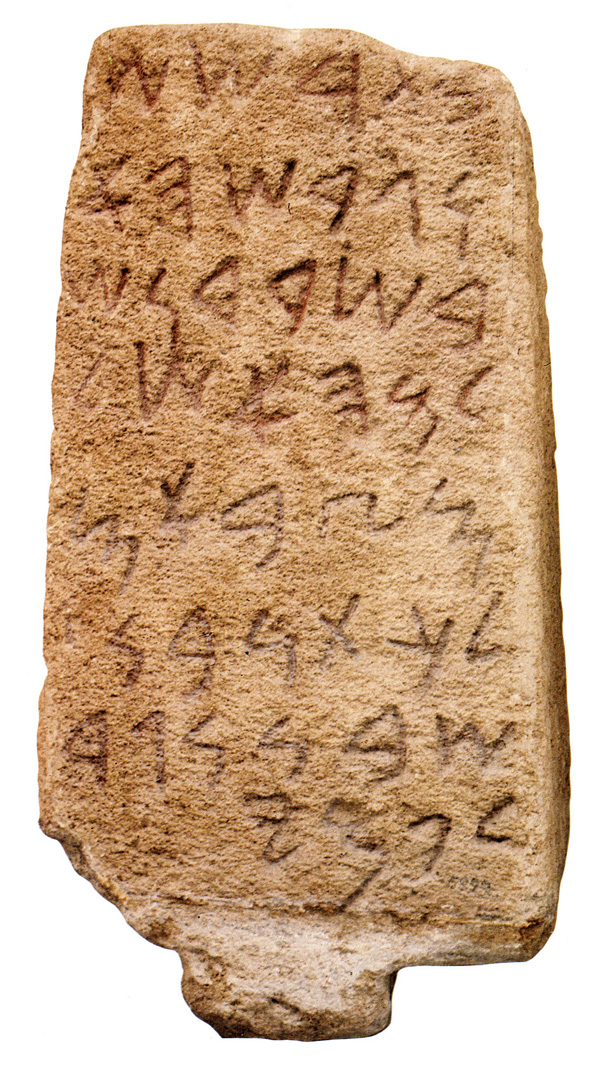 𐤁𐤕𐤓𐤔𐤔
𐤅𐤂𐤓𐤔𐤄𐤀
𐤁𐤔𐤓𐤃𐤍𐤔
𐤋𐤌𐤄𐤀𐤔𐤋
𐤌𐤑𐤁𐤀𐤌
𐤋𐤊𐤕𐤍𐤁𐤍
𐤔𐤁𐤍𐤍𐤂𐤃
𐤋𐤐𐤌𐤉